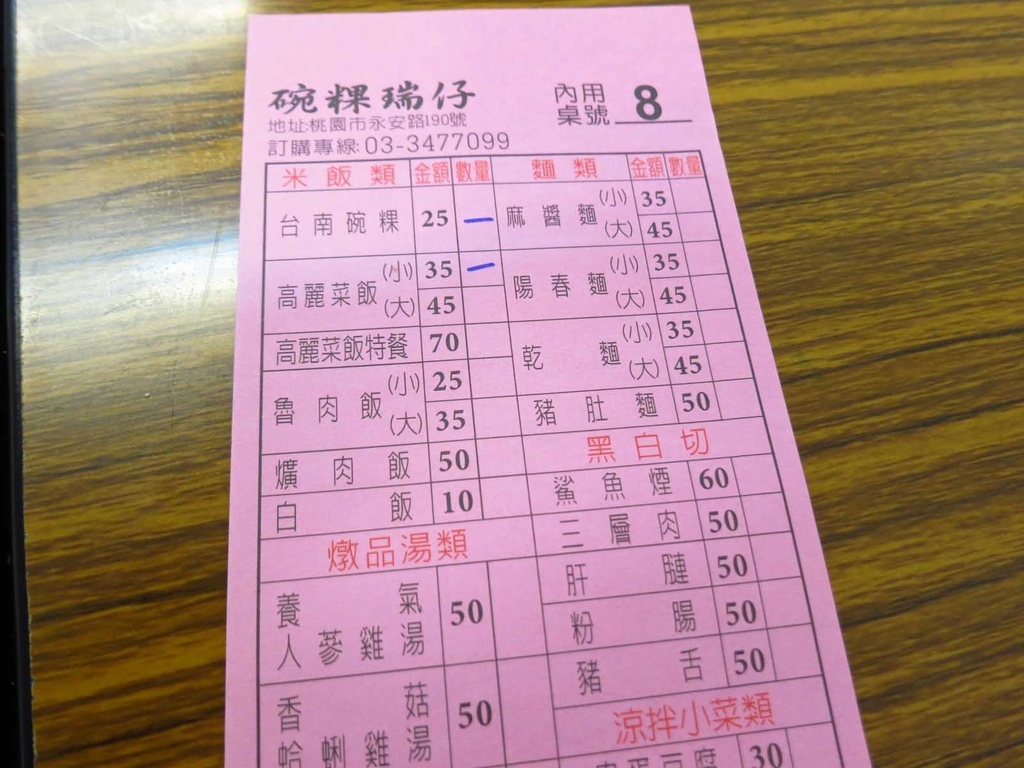 碗粿瑞仔
地址:桃園市永安路190號
訂購專線:03-3477099
內用
桌號 8
米飯類 金額 數量
台南碗粿 25 一
高麗菜飯 (小) 35 一
(大) 45
高麗菜飯特餐 70
魯肉飯 (小) 25
(大) 35
爌肉飯 50
白飯 10
燉品湯類
養氣
人蔘雞湯 50
香菇
蛤蜊雞湯 50
麵類 金額 數量
麻醬麵 (小) 35
(大) 45
陽春麵 (小) 35
(大) 45
乾麵 (小) 35
(大) 45
豬肚麵 50
黑白切
鯊魚煙 60
三層肉 50
肝腱 50
粉腸 50
豬舌 50
涼拌小菜類
皮蛋豆腐 30